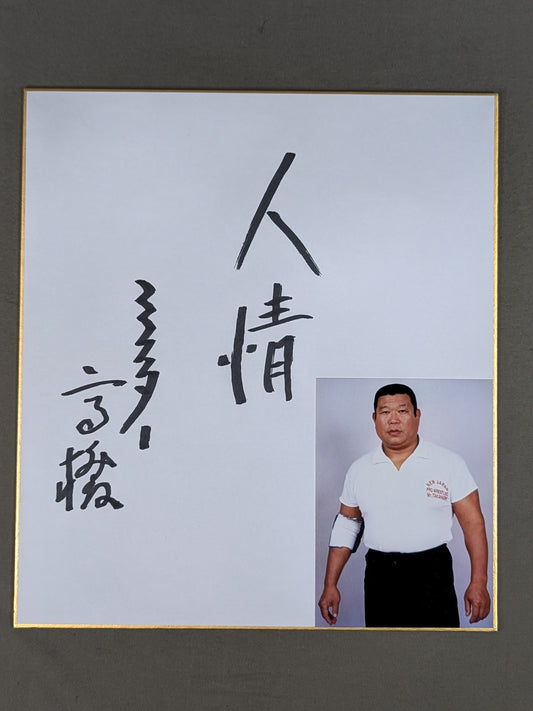 人情
ミスター
高橋
NEW JAPAN
PRO-WRESTLING
Mr.TAKAHASHI